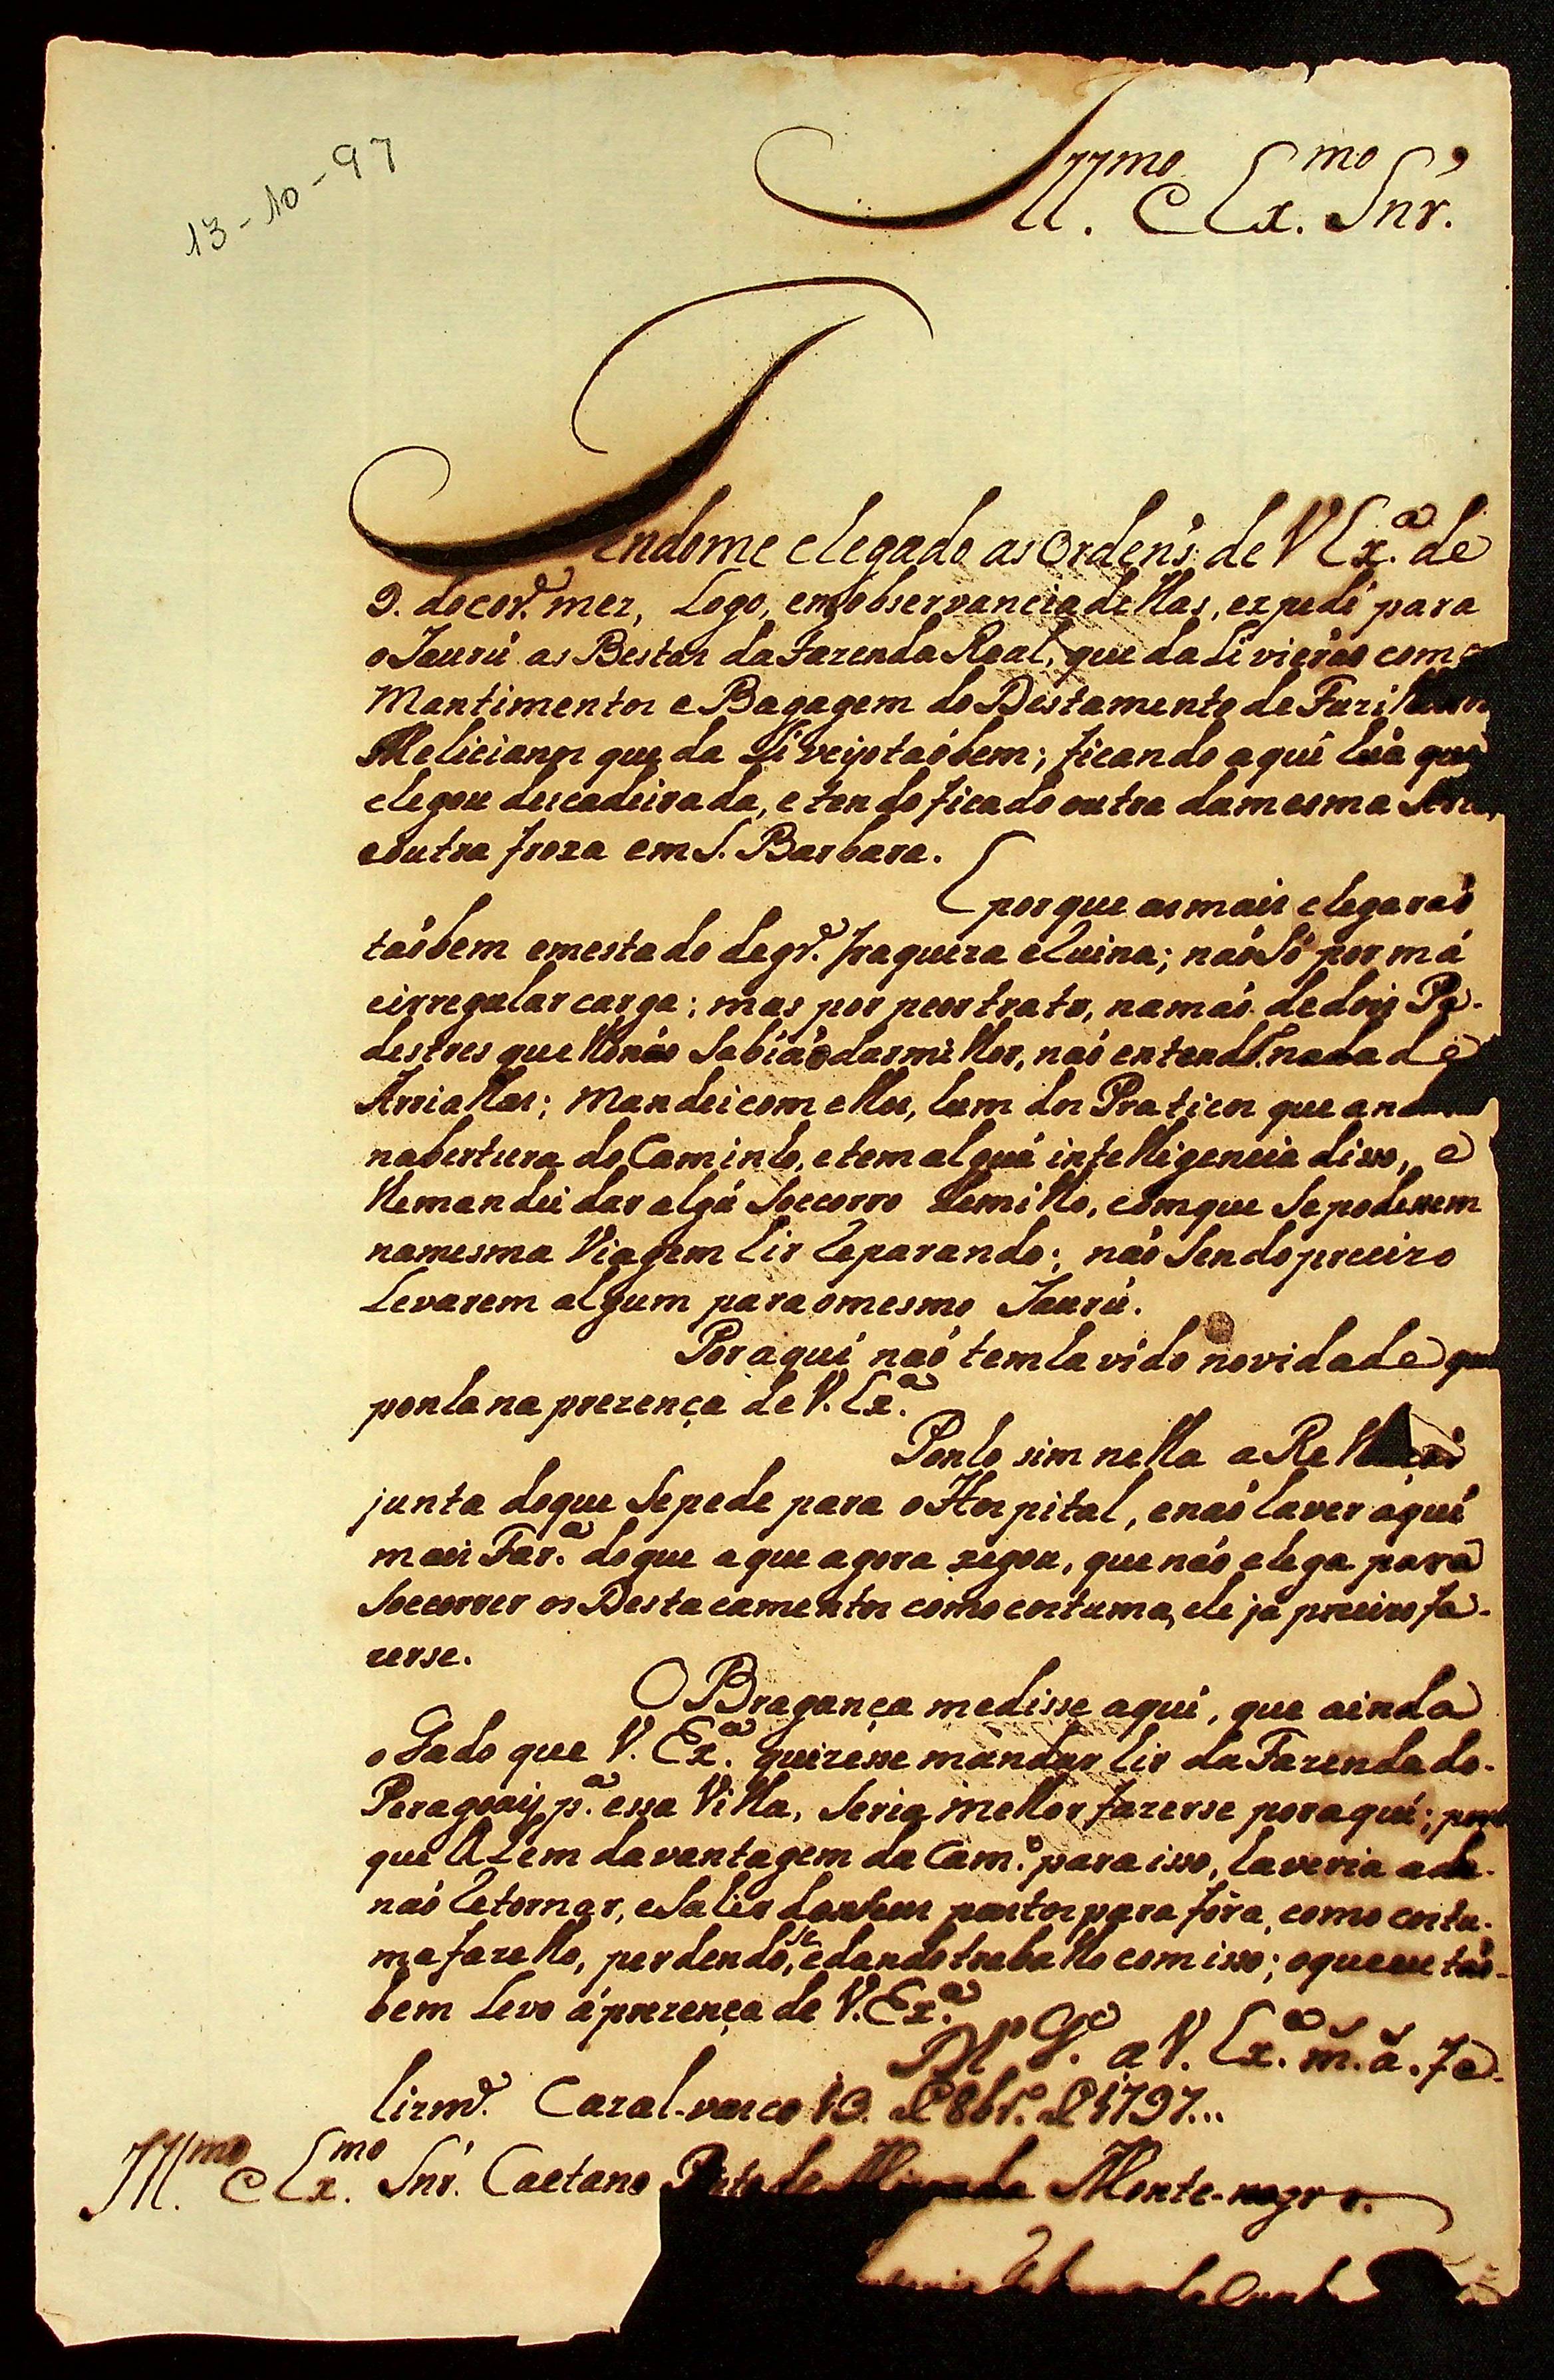 13-10-97
Ill.mo e Ex.mo Snr.
Tendome chegado as Ordens de V Ex.a de
9. do cor.e mez, Logo, em observancia dellas, expedi para
o Jaurú as Bestas da Fazenda Real, que dahi vierão com
Mantimentos e Bagagem do Destamento de
Melicianos que da hi veyo taõbem; ficando aqui hũa que
chegou descadeirada, e tendo ficado outra da mesma
e outra froxa em S. Barbara.
E porque as mais chegaraõ
taõbem em estado de gr.e fraqueza e Ruina; naõ só por má
e irregular carga; mas por peor trato, na maõ de dois Pe-
destres que lhe naõ Sabiaõ dar milhor, naõ entend.o nada de
Arrialhas; Mandei com elles, hum dos Praticos que
na bertura do Caminho, e tem alguã intelligencia disso, e
lhe mandei dar algũ Soccorro de milho, com que Se podessem
na mesma Viagem hir Reparando; naõ Sendo precizo
Levarem algum para o mesmo Jaurú.
Por aqui naõ tem havido novidade que
ponha na prezença de V. Ex.a
Ponho sim nella a Rellaçaõ
junta do que Se pede para o Hospital, e naõ haver aqui
mais Far.a do que a que agora xegou, que naõ chega para
Soccorrer os Destacamentos como costuma, e he ja precizo fa-
zerse.
O Bragança me disse aqui, que ainda
o Gado que V. Ex.a quizesse mandar hir da Fazenda do
Peragoay p.a essa Villa, Seria melhor fazerse por aqui; por
que Alem da vantagem da Cam.o para isso, haveria a de
naõ Retornar, e Sahir dos Seus pastos para fóra, como costu-
ma fazello, perdendose, e dando trabalho com isso; o que eu taõ-
bem Levo á prezença de V. Ex.a
D.s G.e a V. Ex.a m.s a.s fe-
lizm.e Cazal-vasco 13. de 8br.o de 1797...
Ill.mo e Ex.mo Snr. Caetano Pinto de Miranda Monte-negro.